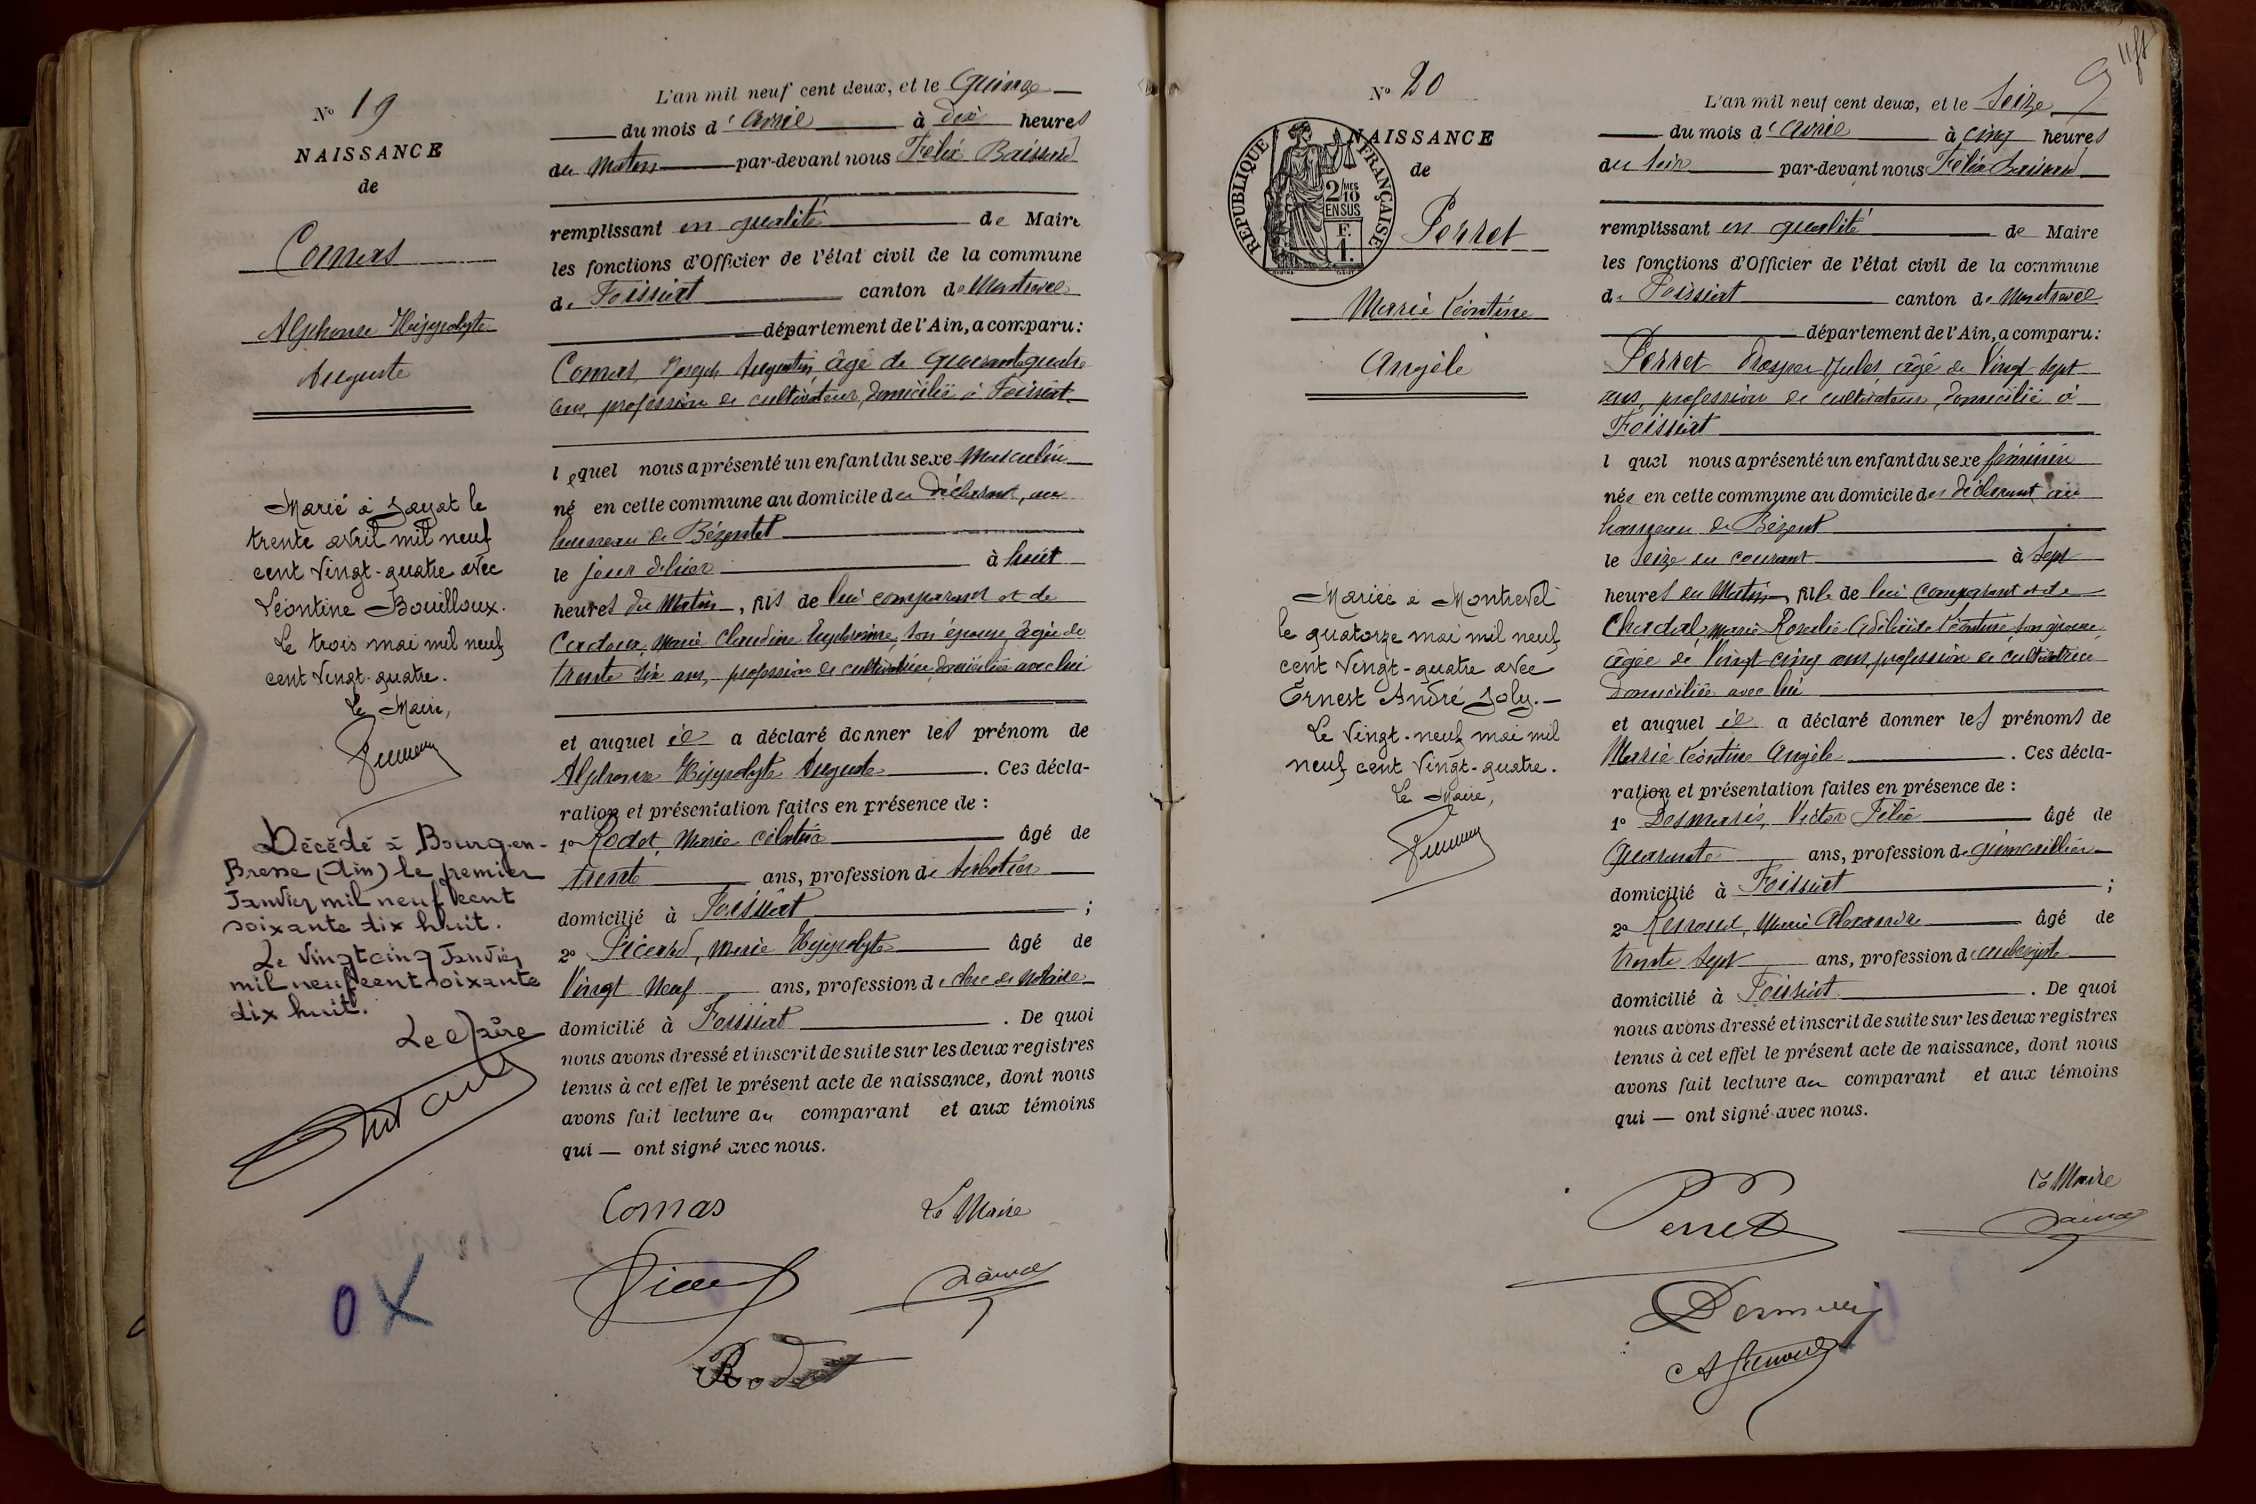 N° 19
NAISSANCE
de
Comas
Alphonse Hippolyte
Auguste
Marié à Jayat le
trente avril mil neuf
cent vingt-quatre avec
Léontine Bouilloux.
Le trois mai mil neuf
cent vingt-quatre.
Le Maire,
Décédé à Bourg-en-
Bresse (Ain) le premier
Janvier mil neuf cent
soixante dix huit.
Le Vingt cinq Janvier
mil neuf cent soixante
dix huit.
Le Maire
L'an mil neuf cent deux, et le Quinze
du mois d'avril à dix heures
du matin par-devant nous Félix
remplissant en qualité de Maire
les fonctions d'Officier de l'état civil de la commune
de Foissiat canton de Montrevel
département de l'Ain, a comparu:
Comas, Joseph Augustin, âgé de quarante quatre
ans, profession de cultivateur, domicilié à Foissiat
lequel nous a présenté un enfant du sexe Masculin
né en cette commune au domicile du déclarant, au
hameau de
le jour d'hier à huit
heures du Matin, fils de lui comparant et de
Marie Claudine son épouse, âgée de
trente six ans, profession de cultivatrice, domiciliée avec lui
et auquel il a déclaré donner les prénom de
Alphonse Hippolyte Auguste. Ces décla-
ration et présentation faites en présence de:
1° Rodet, Marie âgé de
trente ans, profession de
domicilié à Foissiat;
2° Picard, Marie Hippolyte âgé de
Vingt Neuf ans, profession de clerc de Notaire
domicilié à Foissiat. De quoi
nous avons dressé et inscrit de suite sur les deux registres
tenus à cet effet le présent acte de naissance, dont nous
avons fait lecture au comparant et aux témoins
qui — ont signé avec nous.
Comas Le Maire
Rodet
O X
N° 20
NAISSANCE
de
RÉPUBLIQUE FRANÇAISE
2/10 MES
EN SUS
F.
1.
Perret
Marie Léontine
Angèle
Mariée à Montrevel
le quatorze mai mil neuf
cent vingt-quatre avec
Ernest André Joly.—
Le vingt-neuf mai mil
neuf cent vingt-quatre.
Le Maire,
L'an mil neuf cent deux, et le Seize
du mois d'avril à cinq heures
du soir par-devant nous Félix
remplissant en qualité de Maire
les fonctions d'Officier de l'état civil de la commune
de Foissiat canton de Montrevel
département de l'Ain, a comparu:
Perret Prosper Jules âgé de Vingt sept
ans, profession de cultivateur, domicilié à
Foissiat
l quel nous a présenté un enfant du sexe féminin
née en cette commune au domicile du déclarant au
hameau de
le seize du courant à sept
heures du Matin, fille de lui comparant et de
Chadal, Marie Rosalie Adélaïde Léontine, son épouse,
âgée de Vingt cinq ans, profession de cultivatrice
domiciliée avec lui
et auquel il a déclaré donner les prénoms de
Marie Léontine Angèle. Ces décla-
ration et présentation faites en présence de:
1° Desmaris, Victor Félix âgé de
Quarante ans, profession de quincaillier
domicilié à Foissiat;
2° Marie Alexandre âgé de
trente sept ans, profession d'aubergiste
domicilié à Foissiat. De quoi
nous avons dressé et inscrit de suite sur les deux registres
tenus à cet effet le présent acte de naissance, dont nous
avons fait lecture au comparant et aux témoins
qui — ont signé avec nous.
Perret Le Maire